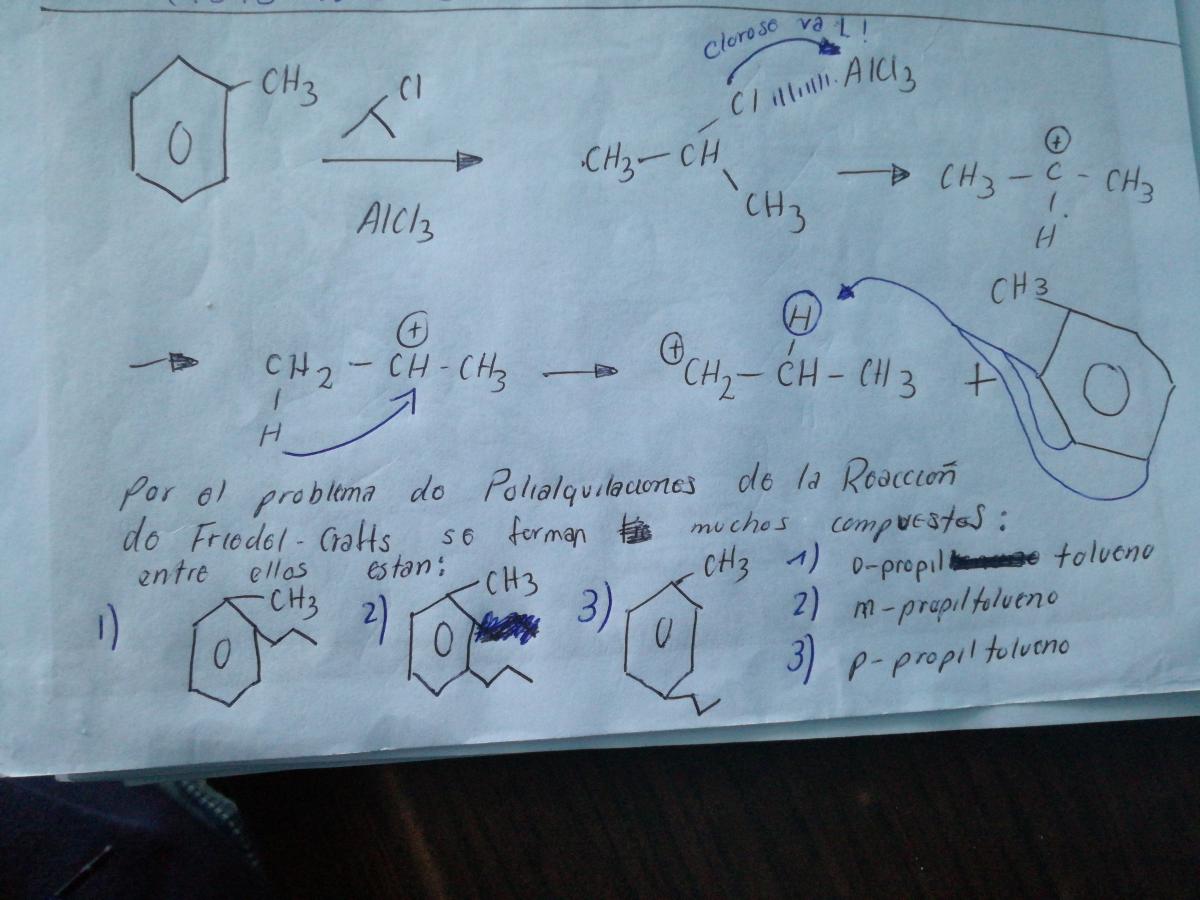 CH3
Cl
AlCl3
Cloroso va L!
Cl AlCl3
CH3 – CH
CH3
+
CH3 – C – CH3
H
+
CH2 – CH - CH3
H
H
+CH2 – CH – CH3 +
CH3
Por el problema de Polialquilaciones de la Reacción
de Friedel-Crafts se forman muchos compuestos:
entre ellos estan:
1) CH3
2) CH3
3) CH3
1) o-propil tolueno
2) m-propiltolueno
3) p-propil tolueno